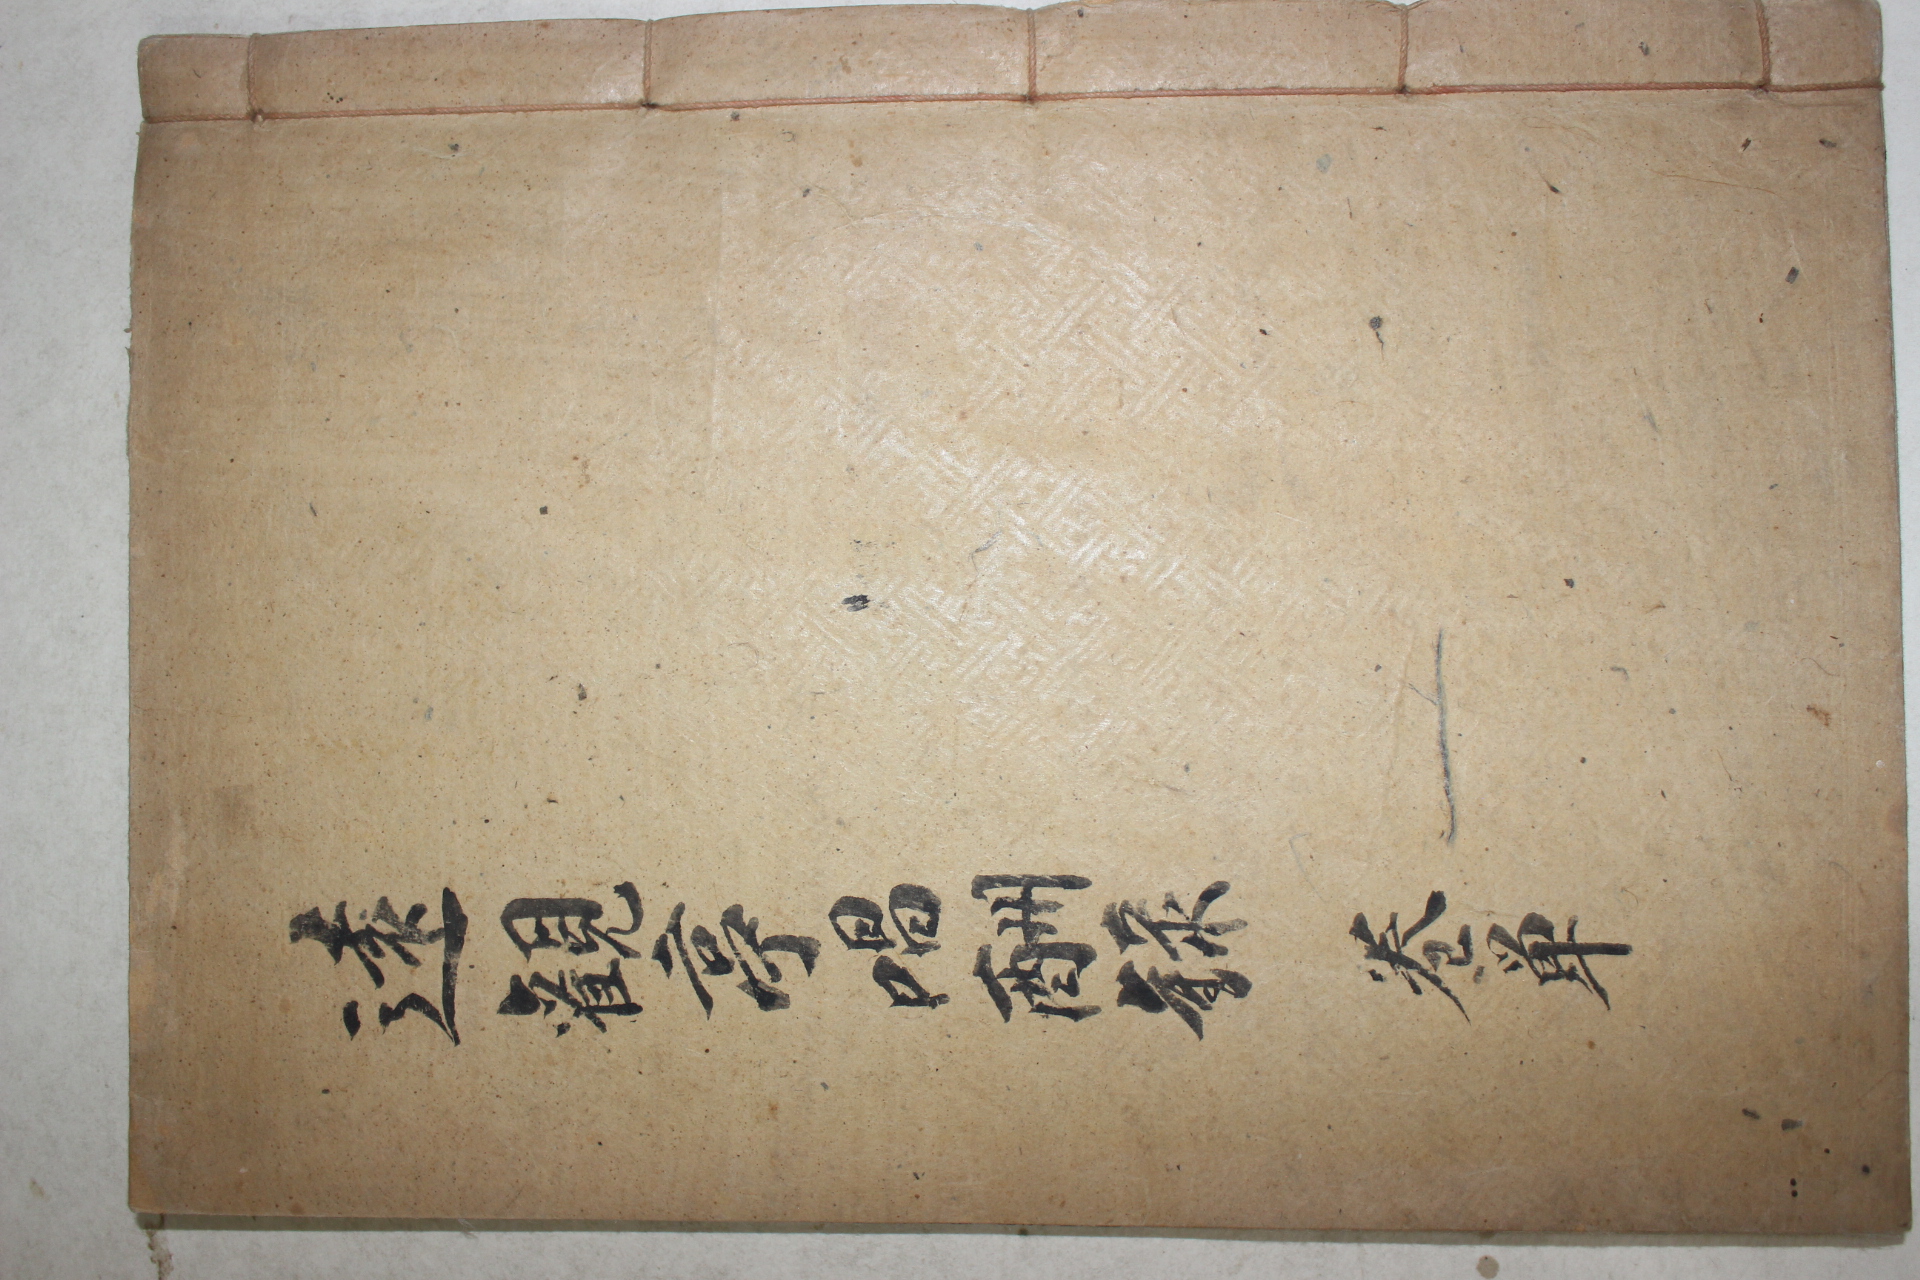 遠觀亭唱酬錄 卷單